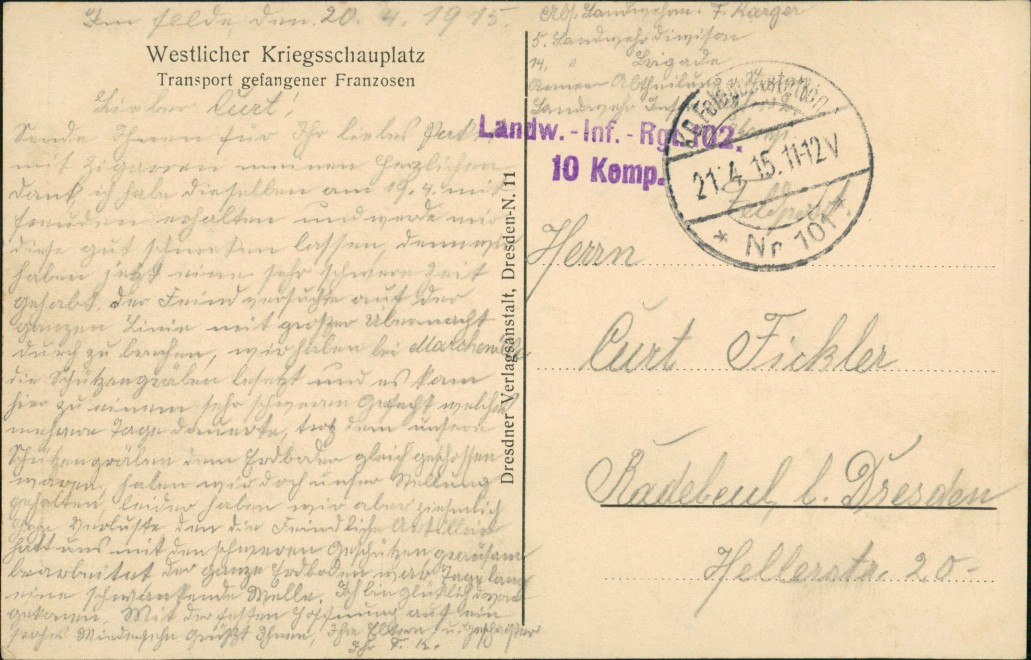 Im Felde, den 20. 4. 1915.
Westlicher Kriegsschauplatz
Transport gefangener Franzosen
Lieber Curt!
Sende Ihnen für Ihr liebes
mit Zigarren meinen herzlichen
Dank, ich habe dieselben am 19.4. mit
Freuden erhalten und werde mir
diese gut schmecken lassen, denn wir
haben jetzt eine sehr schwere Zeit
gehabt. Der Feind versuchte auf der
ganzen Linie mit großer Übermacht
durch zu brechen, wir haben bei
die Schützengräben besetzt und es kam
hier zu einem sehr schweren Gefecht welches
mehrere Tage dauerte, trotz dem unsere
Schützengräben dem Erdboden gleich geschossen
waren, haben wir doch unser Stellung
gehalten, leider haben wir aber ziemlich
Verluste, den die Feindliche Artillerie
hatt uns mit den schweren Geschützen grausam
bearbeitet der ganze Erdboden war Tage lang
eine schwankende Welle. Ich bin glücklich
gekommen. Mit der festen Hoffnung auf ein
frohes Wiedersehn grüßt Ihnen, Ihre Eltern u. Geschwister
Ihr F. K.
Dresdner Verlagsanstalt, Dresden-N. 11
Abs. Landwehrm. F. Karger
5. Landwehrdivision
14. " Brigade
Armee Abtheilung
Landwehr Inf.
Landw.-Inf.-Rgt. 102.
10 Komp.
K.D. Feldpoststation
21.4.15. 11-12V
* Nr. 101 *
Feldpost.
Herrn
Curt Fickler
Radebeul b. Dresden
Hellerstr. 20-